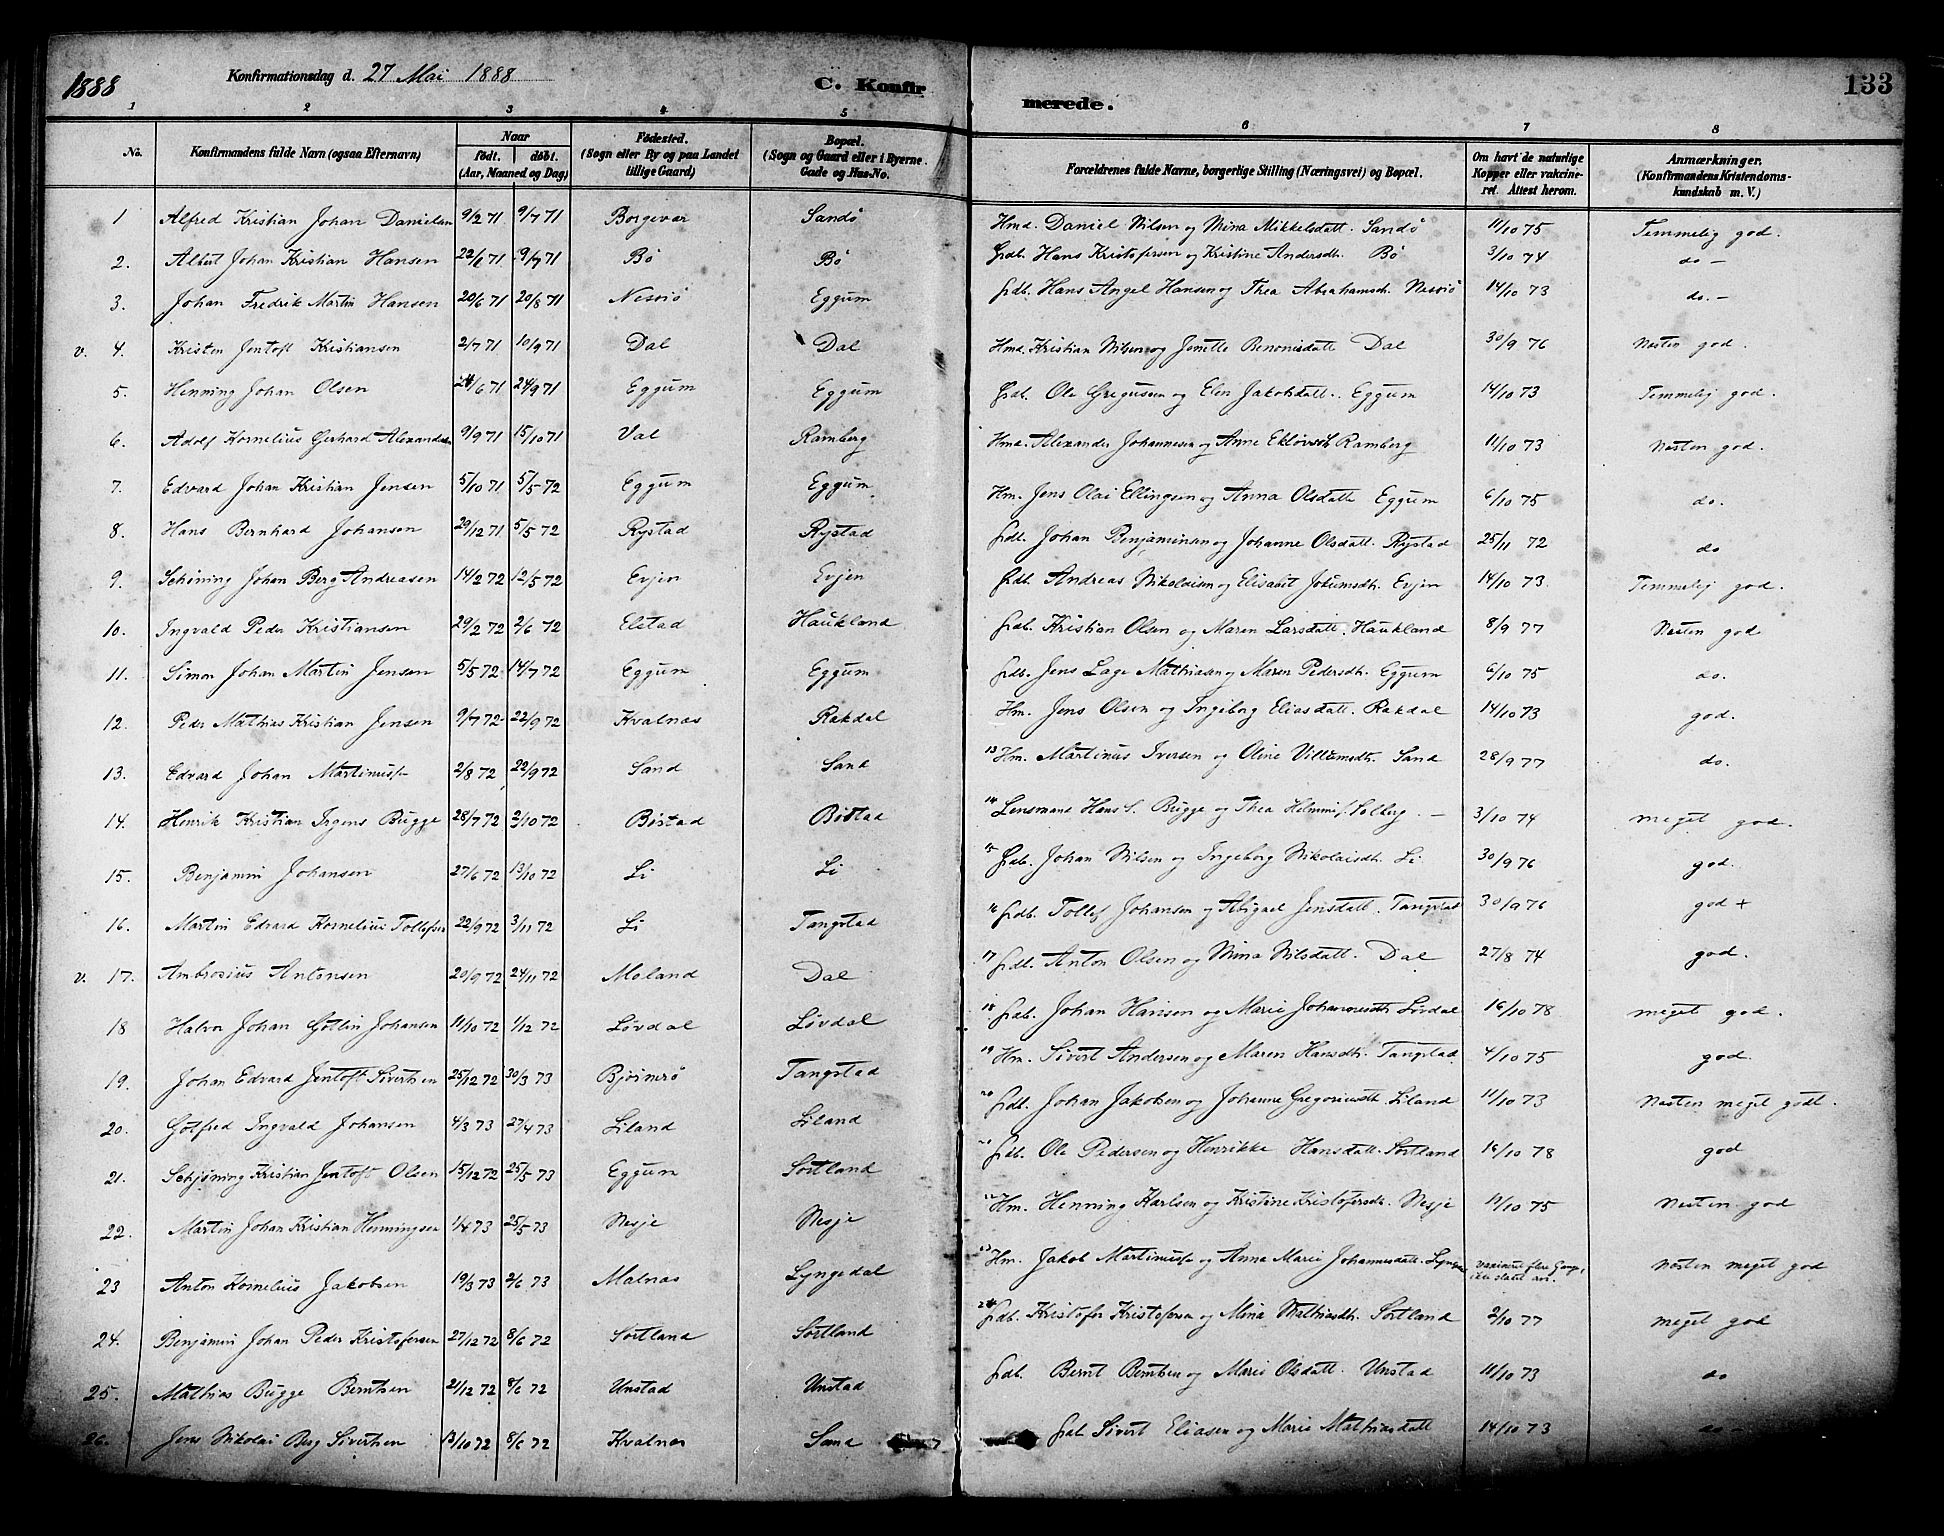 1888
Konfirmationsdag d. 27 Mai 1888
C. Konfirmerede.
133
1 2 3 4 5 6 7 8
No. | Konfirmandens fulde Navn (ogsaa Efternavn) | Naar født. døbt. (Aar, Maaned og Dag) | Fødested. (Sogn eller By og paa Landet tillige Gaard) | Bopæl. (Sogn og Gaard eller i Byerne Gade og Hus-No. | Forældrenes fulde Navne, borgerlige Stilling (Næringsvei) og Bopæl. | Om havt de naturlige Kopper eller vakcineret. Attest herom. | Anmærkninger. (Konfirmandens Kristendomskundskab m. V.)
1 Alfred Kristian Johan Danielsen 9/2 71 9/7 71 Borgevær Sandø Hmd. Daniel Nilsen og Mina Mikkelsdatt. Sandø 11/10 75 Temmelig god.
2. Albert Johan Kristian Hansen 22/6 71 9/9 71 Bø Bø Grdb. Hans Kristofersen og Kristine Andersdt. Bø 3/10 74 do -
3. Johan Fredrik Martin Hansen 20/6 71 20/8 71 Nesviø Eggum Grdb. Hans Angel Hansen og Thea Abrahamsdt. Nesviø 14/10 73 do. -
v. 4. Kristen Jentoft Kristiansen 2/7 71 10/9 71 Dal Dal Hmd. Kristian Nilsen og Jenette Benonisdatt Dal 30/9 76 Næsten god.
5. Henning Johan Olsen 24/6 71 24/9 71 Eggum Eggum Grdb. Ole Gregusen og Elen Jakobsdatt. Eggum 14/10 73 Temmelig god.
6. Adolf Kornelius Gerhard Alexandersen 9/9 71 15/10 71 Val Ramberg Hmd. Alexander Johannesen og Anne Ekløvsdt Ramberg 11/10 73 Næsten god.
7. Edvard Johan Kristian Jensen 5/10 71 5/5 72 Eggum Eggum Hm. Jens Olai Ellingsen og Anna Olsdatt. Eggum 6/10 75 do.
8. Hans Bernhard Johansen 29/12 71 5/5 72 Rystad Rystad Grdb. Johan Benjaminsen og Johanne Olsdatt. Rystad 25/11 72 do
9. Schøning Johan Berg Andreasen 14/2 72 12/5 72 Evjen Evjen Grdb. Andreas Nikolaisen og Elisabet Jokumsdt. Evjen 14/10 73 Temmelig god.
10. Ingvald Peder Kristiansen 29/2 72 2/6 72 Elstad Haukland Grdb. Kristian Olsen og Maren Larsdatt. Haukland 8/9 77 Næsten god
11. Simon Johan Martin Jensen 5/5 72 14/7 72 Eggum Eggum Grdb. Jens Lage Mathiasen og Maren Pedersdt. Eggum 6/10 75 do.
12. Peder Mathias Kristian Jensen 9/7 72 22/9 72 Kvalnæs Rakdal Hm. Jens Olsen og Ingeborg Eliasdatt. Rakdal 14/10 73 god.
13. Edvard Johan Martinuss 2/8 72 22/9 72 Sand Sand 13 Hm. Martinus Iversen og Oline Villumsdt. Sand 28/9 77 do.
14. Henrik Kristian Irgens Bugge 28/7 72 2/10 72 Bøstad Bøstad 14 Lensmand Hans S. Bugge og Thea Helmine f. Solberg. - 3/10 74 meget god.
15. Benjamin Johansen 27/6 72 13/10 72 Li Li 15 Grdb. Johan Nilsen og Ingeborg Nikolaisdt. Li 30/9 76 god.
16. Martin Edvard Kornelius Tollefsen 22/9 72 3/11 72 Li Tangstad 16 Grdb. Tollef Johansen og Abigael Jensdatt. Tangstad 30/9 76 god +
v. 17. Ambrosius Antonsen 20/9 72 24/11 72 Moland Dal 17 Grdb. Anton Olsen og Mina Nilsdatt. Dal 27/8 74 god.
18 Halvor Johan Gotlin Johansen 11/10 72 1/12 72 Løvdal Løvdal 18 Grdb. Johan Hansen og Marie Johannesdt. Løvdal 16/10 78 meget god.
19. Johan Edvard Jentoft Sivertsen 25/12 72 30/3 73 Bjørnerø Tangstad 19 Hm. Sivert Andersen og Maren Hansdt. Tangstad 4/10 75 god.
20. Gotfred Ingvald Johansen 4/3 73 27/4 73 Liland Liland 20 Grdb. Johan Jakobsen og Johanne Gregoriusdt. Liland 11/10 73 Næsten meget godt.
21. Schjøning Kristian Jentoft Olsen 15/12 72 25/5 73 Eggum Sortland 21 Grdb. Ole Pedersen og Henrikke Hansdatt. Sortland 16/10 78 god
22. Martin Johan Kristian Henningsen 1/4 73 25/5 73 Nesje Nesje 22 Hm. Henning Karlsen og Kristine Kristofersdt. Nesje 11/10 75 Næsten god
23 Anton Kornelius Jakobsen 19/3 73 2/6 73 Malnæs Lyngedal 23 Hm. Jakob Martinuss og Anne Marie Johannesdatt. vakcineret flere Gange, Næsten meget god
24. Benjamin Johan Peder Kristofersen 27/12 72 8/6 72 Sortland Sortland 24 Grdb. Kristofer Kristofersen og Mina Mathiasdt. Sortland 2/10 77 meget god
25. Mathias Bugge Berntsen 21/12 72 8/6 72 Unstad Unstad Grdb. Bernt Berntsen og Marie Olsdatt. Unstad 11/10 73 do
26. Jens Nikolai Berg Sivertsen 13/10 72 8/6 72 Kvalnæs Sand Grdb Sivert Eliasen og Marie Mathiasdatt 14/10 73 do -